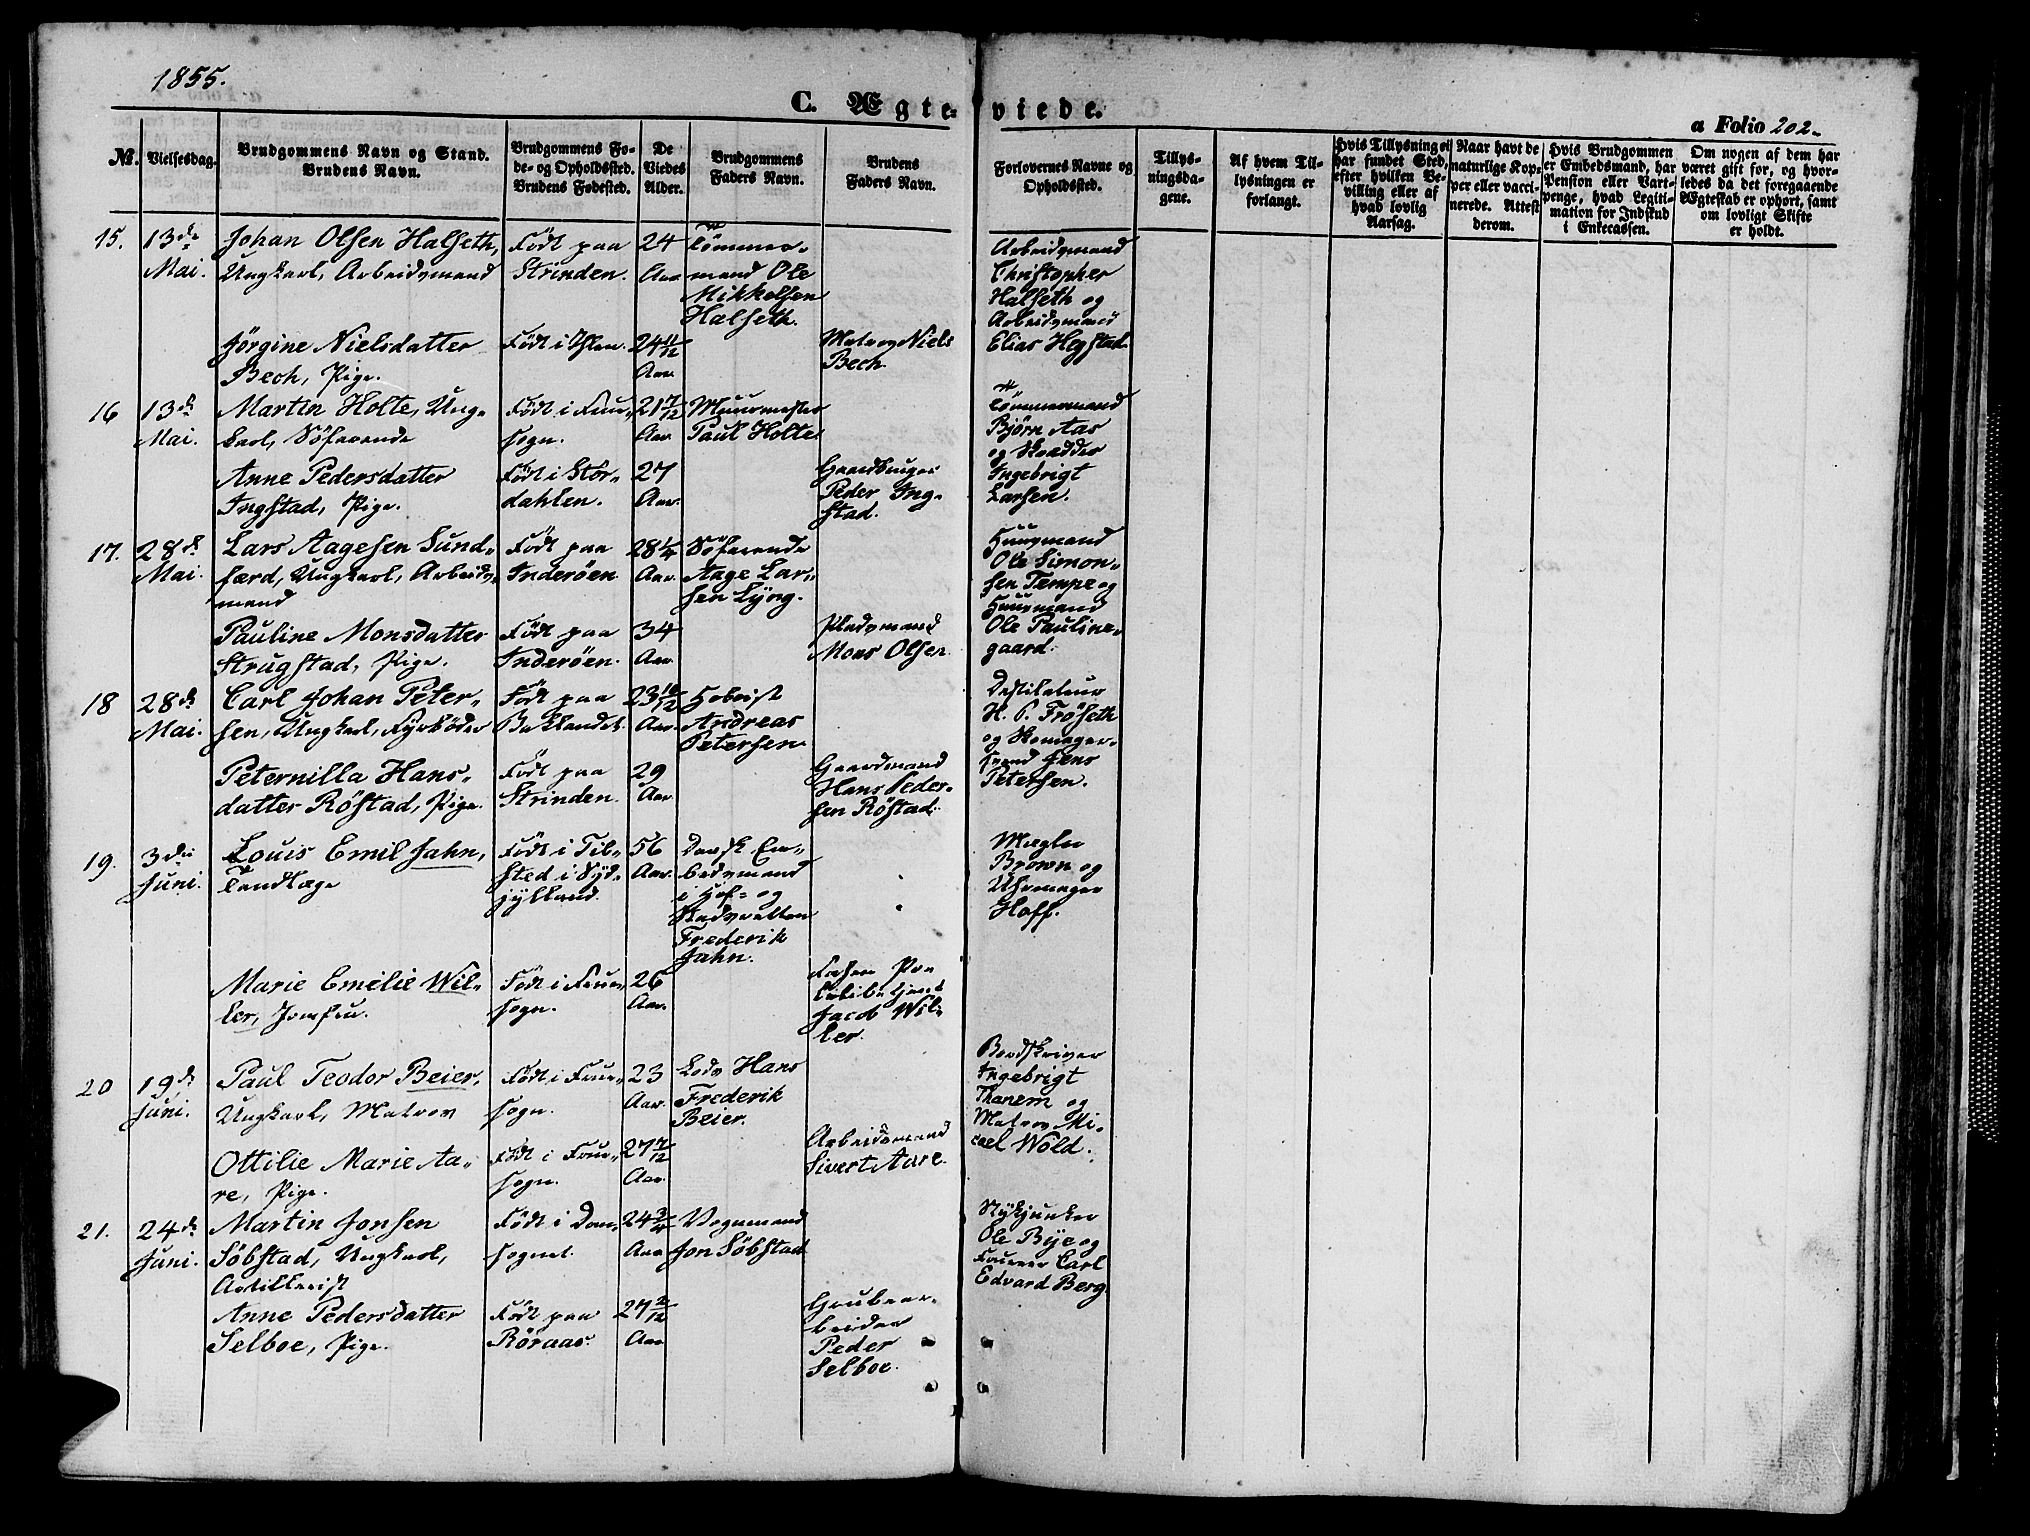 1855.
C. Ægte-viede.
a Folio 202.
No. Vielsesdag. Brudgommens Navn og Stand. Brudens Navn. Brudgommens Fø-de- og Opholdssted. Brudens Fødested. De Viedes Alder. Brudgommens Faders Navn. Brudens Faders Navn. Forlovernes Navne og Opholdssted. Tillys-ningsda-gene. Af hvem Til-lysningen er forlangt. Hvis Tillysning ei har fundet Sted, efter hvilken Be-villing eller af hvad lovlig Aarsag. Naar havt de naturlige Kop-per eller vacci-nerede. Attest derom. Hvis Brudgommen er Embedsmand, har Pension eller Vart-penge, hvad Legiti-mation for Indskud i Enkecassen. Om nogen af dem har været gift før, og hvor-ledes da det foregaaende Ægteskab er ophørt, samt om lovligt Skifte er holdt.
15. 13de Mai.
Johan Olsen Halseth,
Ungkarl, Arbeidsmand
Født paa
Strinden.
24
Aar
Tömmer-
mand Ole
Mikkelsen
Halseth.
Arbeidsmand
Christopher
Halseth og
Arbeidsmand
Elias Hegstad.
Jörgine Nielsdatter
Bech, Pige.
Født i Ihlen.
24 11/12
Aar.
Matros Niels
Bech.
16 13de Mai.
Martin Holte, Ung-
karl, Söfarende
Født i Frue-
sogn.
21 7/12
Aar.
Muurmester
Paul Holte.
Tömmermand
Bjørn Aas
og Skrædder
Ingebrigt
Larsen.
Anne Pedersdatter
Ingstad, Pige.
Født i Stör-
dahlen.
27
Aar.
Gaardbruger
Peder Ing-
stad.
17. 28de Mai.
Lars Aagesen Sund-
færd, Ungkarl, Arbeids-
mand
Født paa
Inderöen.
28 1/4
Aar.
Söfarende
Aage Lar-
sen Lyng.
Huusmand
Ole Simon-
sen Tempe og
Huusmand
Ole Pauline-
gaard.
Pauline Monsdatter
Strugstad, Pige.
Født paa
Inderöen.
34
Aar.
Pladsmand
Mons Olsen.
18 28de Mai.
Carl Johan Peter-
sen, Ungkarl, Fyrböder
Født paa
Baklandet.
23 10/12
Aar.
Hoboist
Andreas
Petersen.
Destilateur
H. P. Fröseth
og Skomager-
svend Jens
Petersen.
Peternilla Hans-
datter Röstad, Pige.
Født paa
Strinden.
29
Aar.
Gaardmand
Hans Peder-
sen Röstad.
19. 3die Juni.
Louis Emil Jahn,
Tandlæge
Født i Til-
sted i Syd-
jylland.
56
Aar.
Dansk Em-
bedsmand
i Hof- og
Stadsretten
Frederik
Jahn.
Mægler
Brown og
Uhrmager
Hoff.
Marie Emelie Wil-
ler, Jomfru.
Født i Frue-
sogn.
26
Aar.
Jacob Wil-
ler.
20 19de Juni.
Paul Teodor Beier,
Ungkarl, Matros
Født i Frue-
sogn.
23
Aar.
Lods Hans
Frederik
Beier.
Bordskriver
Ingebrigt
Thanem og
Matros Mi-
cael Wold.
Ottilie Marie Aa-
re, Pige.
Født i Frue-
sogn.
27 7/12
Aar.
Arbeidsmand
Sivert Aare.
21. 24de Juni.
Martin Jonsen
Söbstad, Ungkarl,
Artillerist
Født i Dom-
sognet.
24 3/4
Aar
Vognmand
Jon Söbstad.
Stykjunker
Ole Bye og
Fourer Carl
Edvard Berg.
Anne Pedersdatter
Selboe, Pige.
Født paa
Röraas.
27 2/12
Aar
Grubear-
beider
Peder
Selboe.